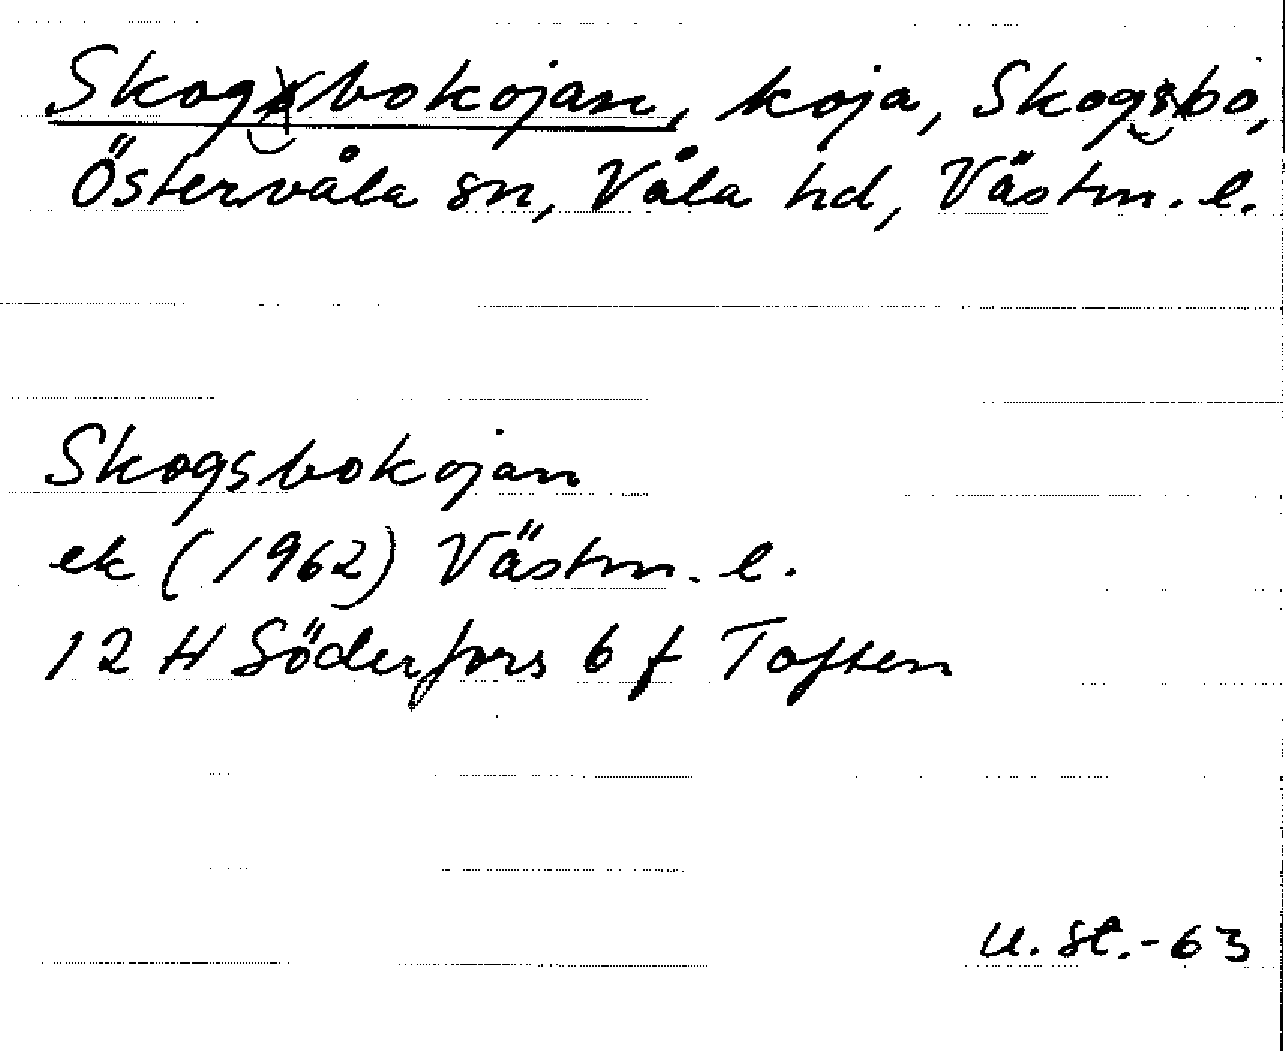 Skogbokojan, koja, Skogbo,
Östervåla sn, Våla hd, Västm. l.
Skogsbokojan
ek (1962) Västm. l.
12 H Söderfors 6 f Toften
U. St. - 63